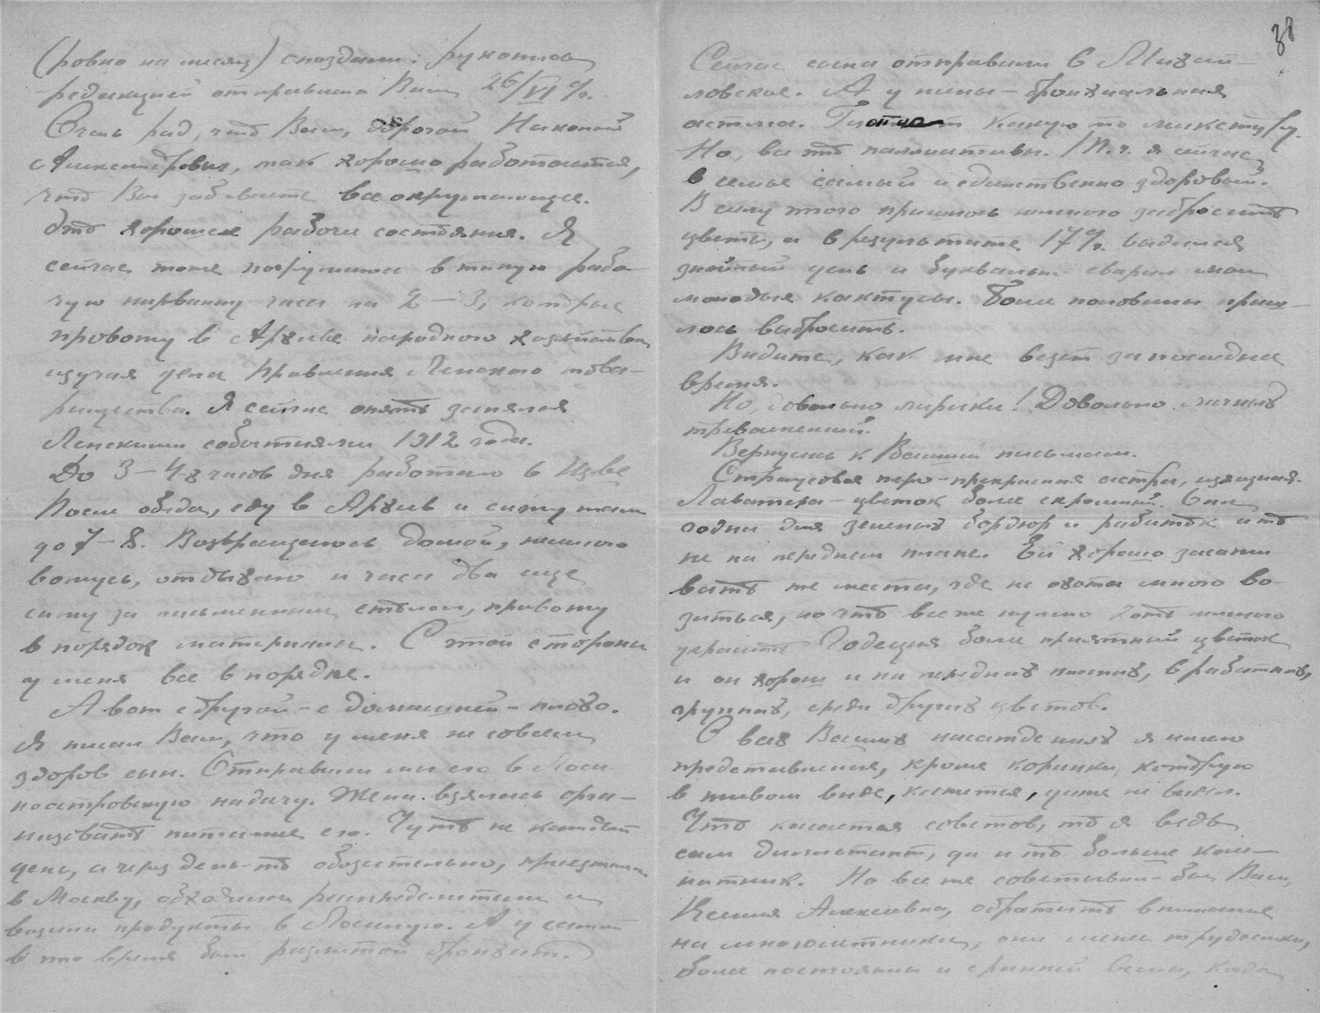 (ровно на месяц) с поздан. Рукопись
редакцией отправлена Вам 26/VI с/г.
Очень рад, что Вам, дорогой Никанор
Александрович, так хорошо работается,
что Вы забываете все окружающее.
Это хорошее рабочее состояние. Я
сейчас тоже погружаюсь в такую рабо-
чую нирвану часа на 2 – 3, которые
провожу в Архиве народного хозяйства,
изучая дела Правления Ленского това-
рищества. Я сейчас опять занялся
Ленскими событиями 1912 года.
До 3 – 4х часов дня работаю в
После обеда, еду в Архив и сижу там
до 7 – 8. Возвращаюсь домой, немного
вожусь, отдыхаю и часа два еще
сижу за письменным столом, привожу
в порядок материалы. С этой стороны
у меня все в порядке.
А вот с другой – с домашней – плохо.
Я писал Вам, что у меня не совсем
здоров сын. Отправили мы его в Лоси-
ноостровскую на дачу. Жена взялась орга-
низовать питание его. Чуть не каждый
день, а через день-то обязательно, приезжала
в Москву, обходила распределители и
возила продукты в Лосинку. А у самой
в это время был разлитой бронхит.
38
Сейчас сына отправили в Михай-
ловское. А у жены – бронхиальная
астма. какую то микстуру.
Но, все это паллиативы. Т.ч. я сейчас
в семье самый и единственно здоровый.
В силу этого пришлось много забросить
цветы, а в результате 17% выдался
знойный день и буквально сварил мои
молодые кактусы. Более половины приш-
лось выбросить.
Видите, как мне везет за последнее
время.
Но, довольно лирики! Довольно личных
треволнений.
Вернусь к Вашим письмам.
Страусовое перо – прекрасная астра, изящная.
Лаватера – цветок более скромный. Она
годна для зеленых бордюр и рабаток и то
не на переднем плане. Ей хорошо засажи-
вать те места, где не охота много во-
зиться, но что все же нужно хоть немного
украсить. Годеция более приятный цветок
и он хорош и на передних планах, в рабатках,
группах, среди других цветов.
О всех Ваших насаждениях я имею
представление, кроме коринки, которую
в живом виде, кажется, даже не видел.
Что касается советов, то я ведь
сам дилетант, да и то больше ком-
натник. Но все же советывал бы Вам,
Ксения Алексеевна, обратить внимание
на многолетники, они менее трудоемки,
более постоянны и с ранней весны, когда